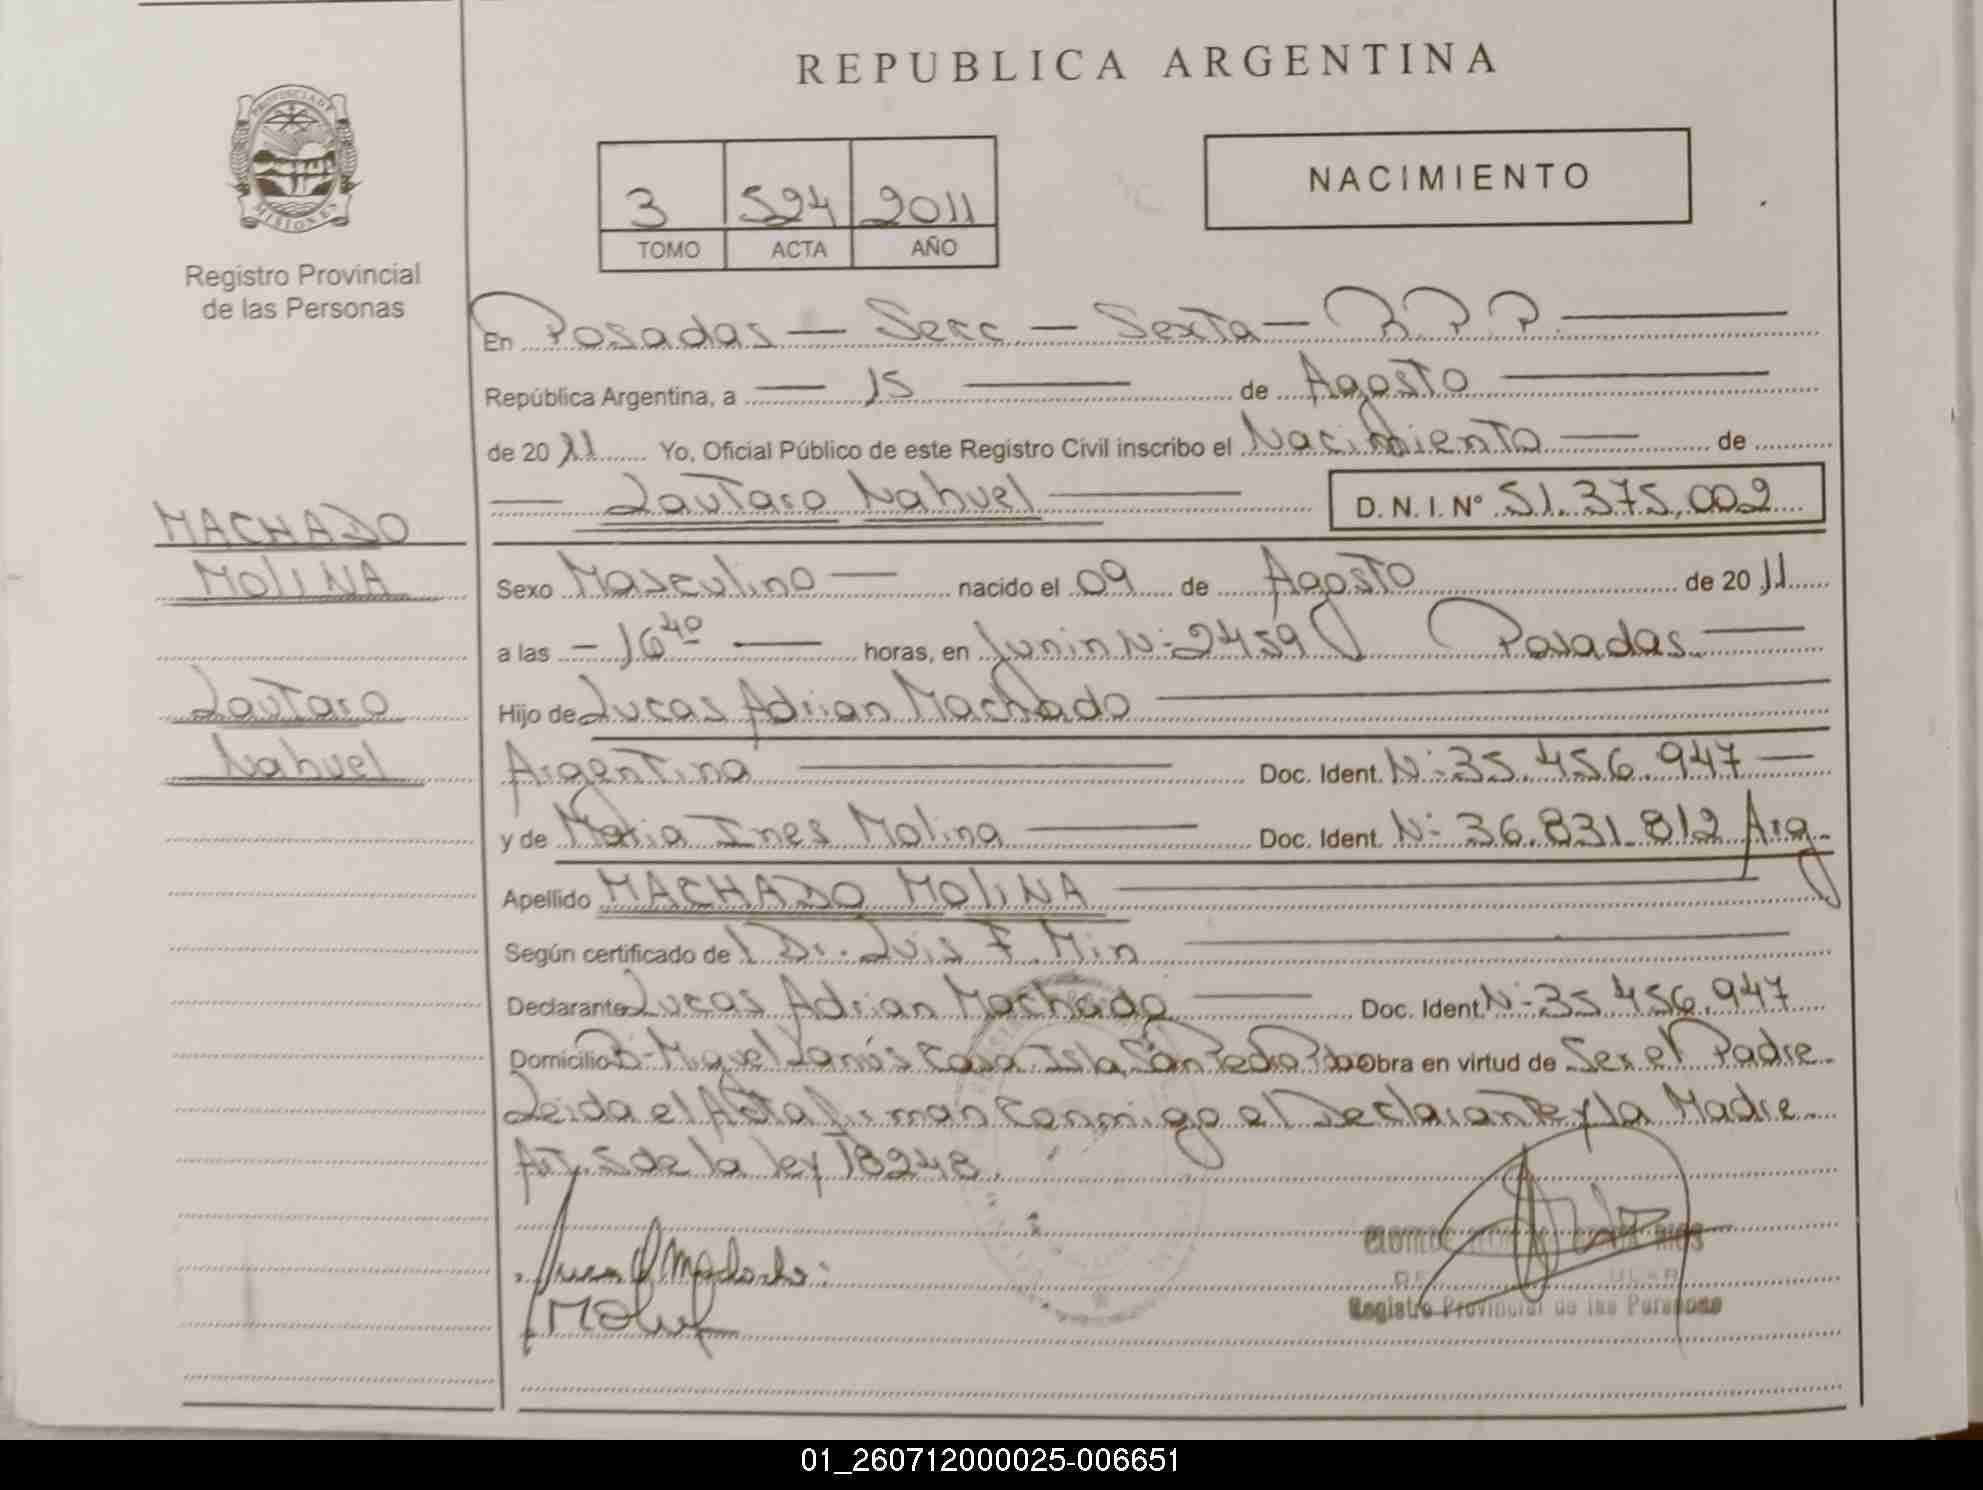 REPUBLICA ARGENTINA
PROVINCIA DE
MISIONES
Registro Provincial
de las Personas
3 524 2011
TOMO ACTA AÑO
NACIMIENTO
En Posadas - Secc - Sexta - R P P.
República Argentina, a 15 de Agosto
de 2011 Yo, Oficial Público de este Registro Civil inscribo el Nacimiento de
Lautaro Nahuel D. N. I. Nº 51.375.002
MACHADO
MOLINA
Lautaro
Nahuel
Sexo Masculino nacido el 09 de Agosto de 2011
a las - 16 40 horas, en Junin Nº 2459 Posadas
Hijo de Lucas Adrian Machado
Argentina Doc. Ident. Nº 35.456.947
y de Maria Ines Molina Doc. Ident. Nº 36.831.812 Arg
Apellido MACHADO MOLINA
Según certificado de l Dr. Luis F. Min
Declarante Lucas Adrian Machado Doc. Ident Nº 35456.947
Domicilio Bº Miguel Lanús Casa Isla San Pedro Obra en virtud de Ser el Padre
Leida el Acta firman conmigo el Declarante y la Madre
Art. 5 de la ley 18248.
Machado
Registro Provincial de las Personas
01_260712000025-006651